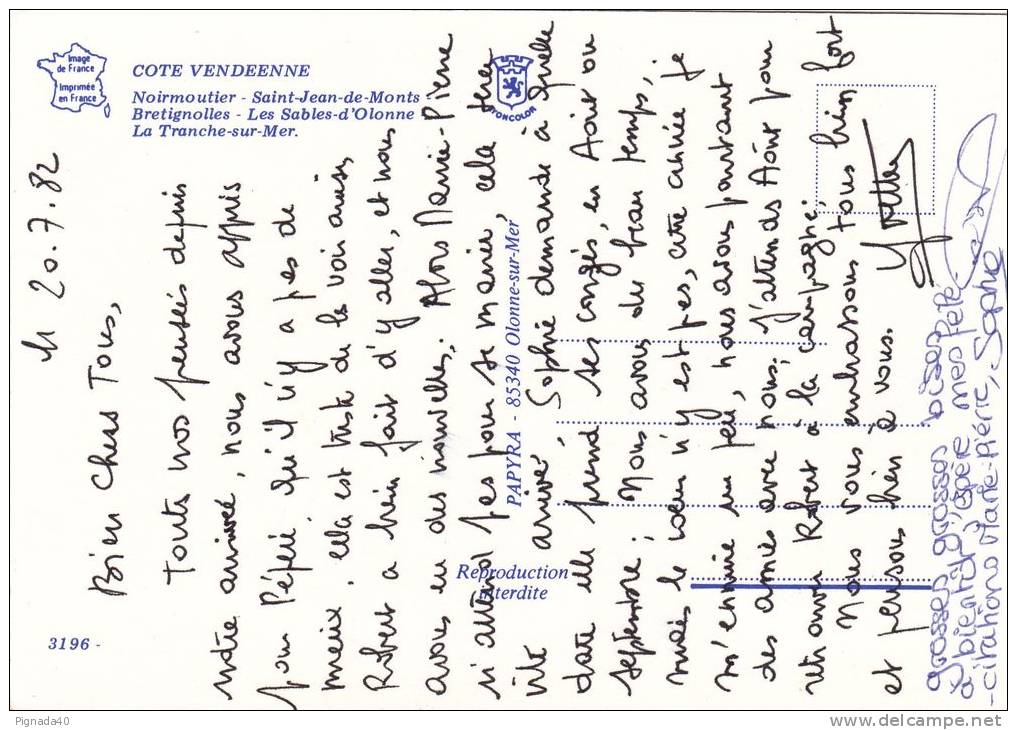 Image
de France
Imprimée
en France
COTE VENDEENNE
Noirmoutier - Saint-Jean-de-Monts
Bretignolles - Les Sables-d'Olonne
La Tranche-sur-Mer.
YONCOLOR
PAPYRA - 85340 Olonne-sur-Mer
Reproduction
interdite
3196 -
20.7.82
Bien Chers Tous,
Toutes nos pensées depuis
notre arrivée, nous avons appris
pour Pépère qu'il n'y a pas de
mieux. cela est triste de le voir ainsi,
Robert a bien fait d'y aller, et nous
avons eu des nouvelles. Alors Marie-Pierre
n'attend pas pour se marier, cela sera
vite arrivé, Sophie demande à quelle
date elle prend ses congés, en Août ou
septembre; Nous avons du beau temps,
mais le coeur n'y est pas, cette année je
m'ennuie un peu, nous avons pourtant
des amies avec nous, j'attends Août pour
retrouver Robert à la campagne.
Nous vous embrassons tous bien fort
et pensons bien à vous. Yvette
grosses grosses bises
à bientôt j'espère mes féli
-citations Marie-Pierre, Sophie
Pignada40
delcampe.net